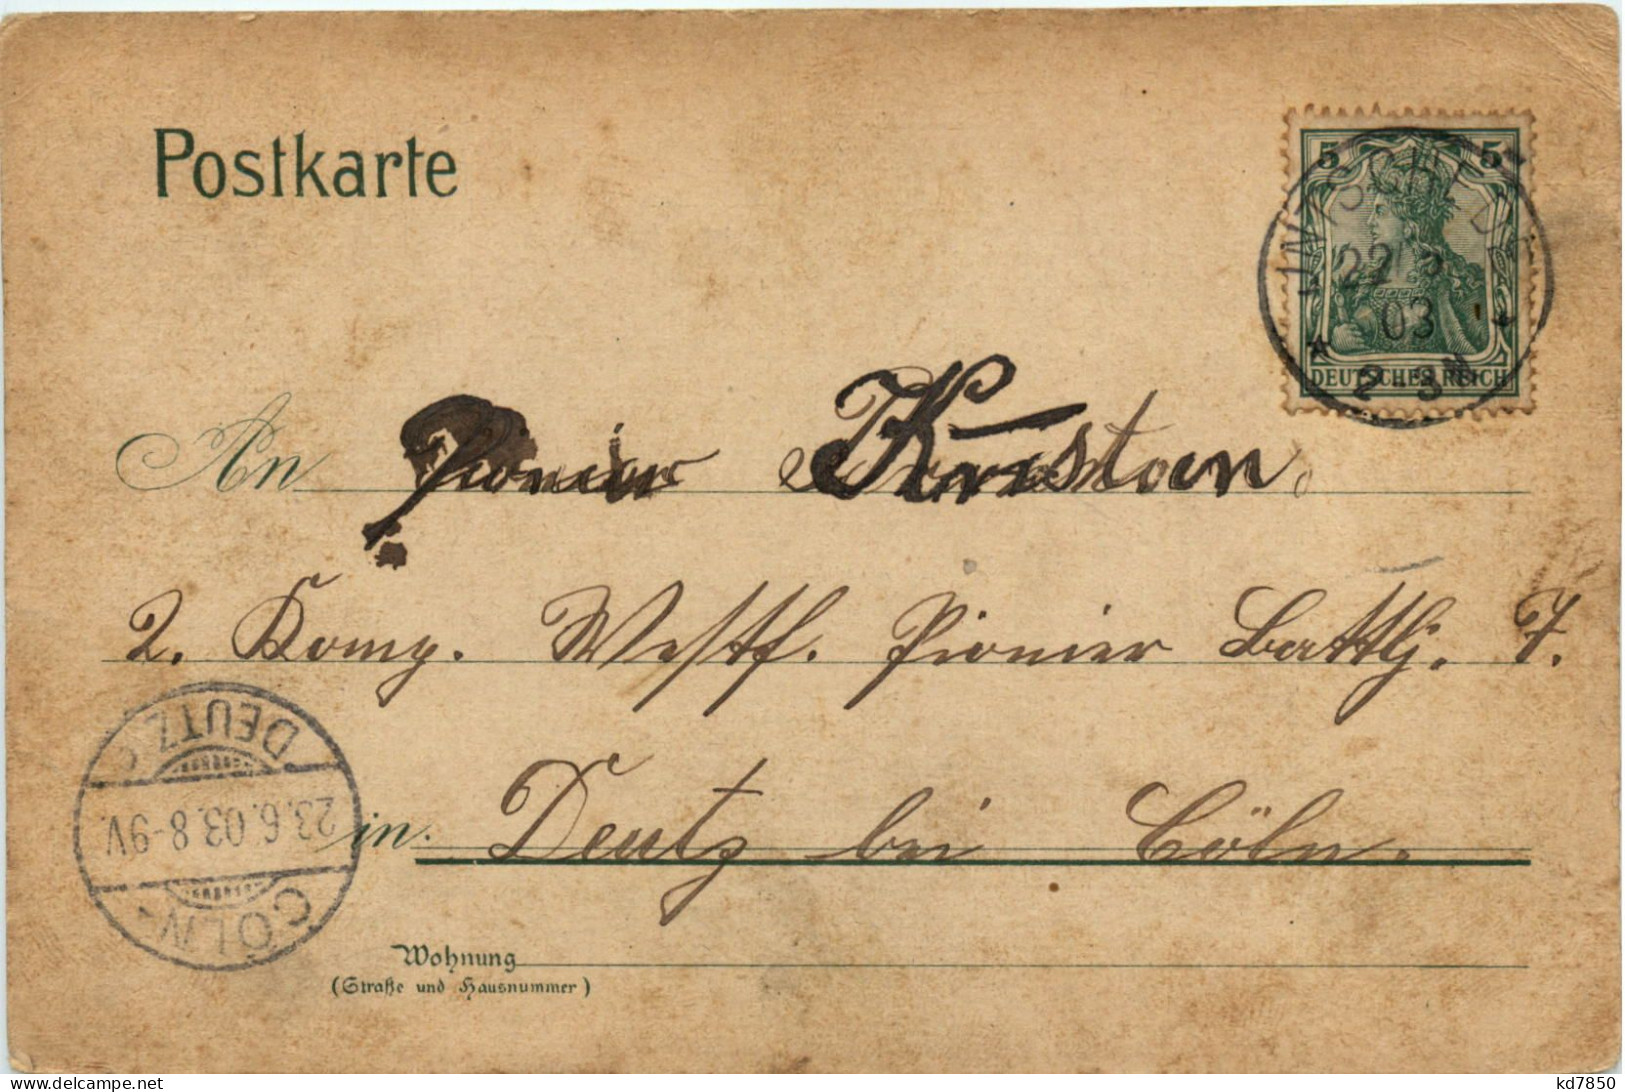 Postkarte
5 5
22 6
03
2-3N
DEUTSCHES REICH
An Pionier Kristan.
2. Komp. Westf. Pionier Battlj. 7.
DEUTZ
23.6.03.8-9V.
CÖLN
in Deutz bei Cöln.
Wohnung
(Straße und Hausnummer)
kd7850